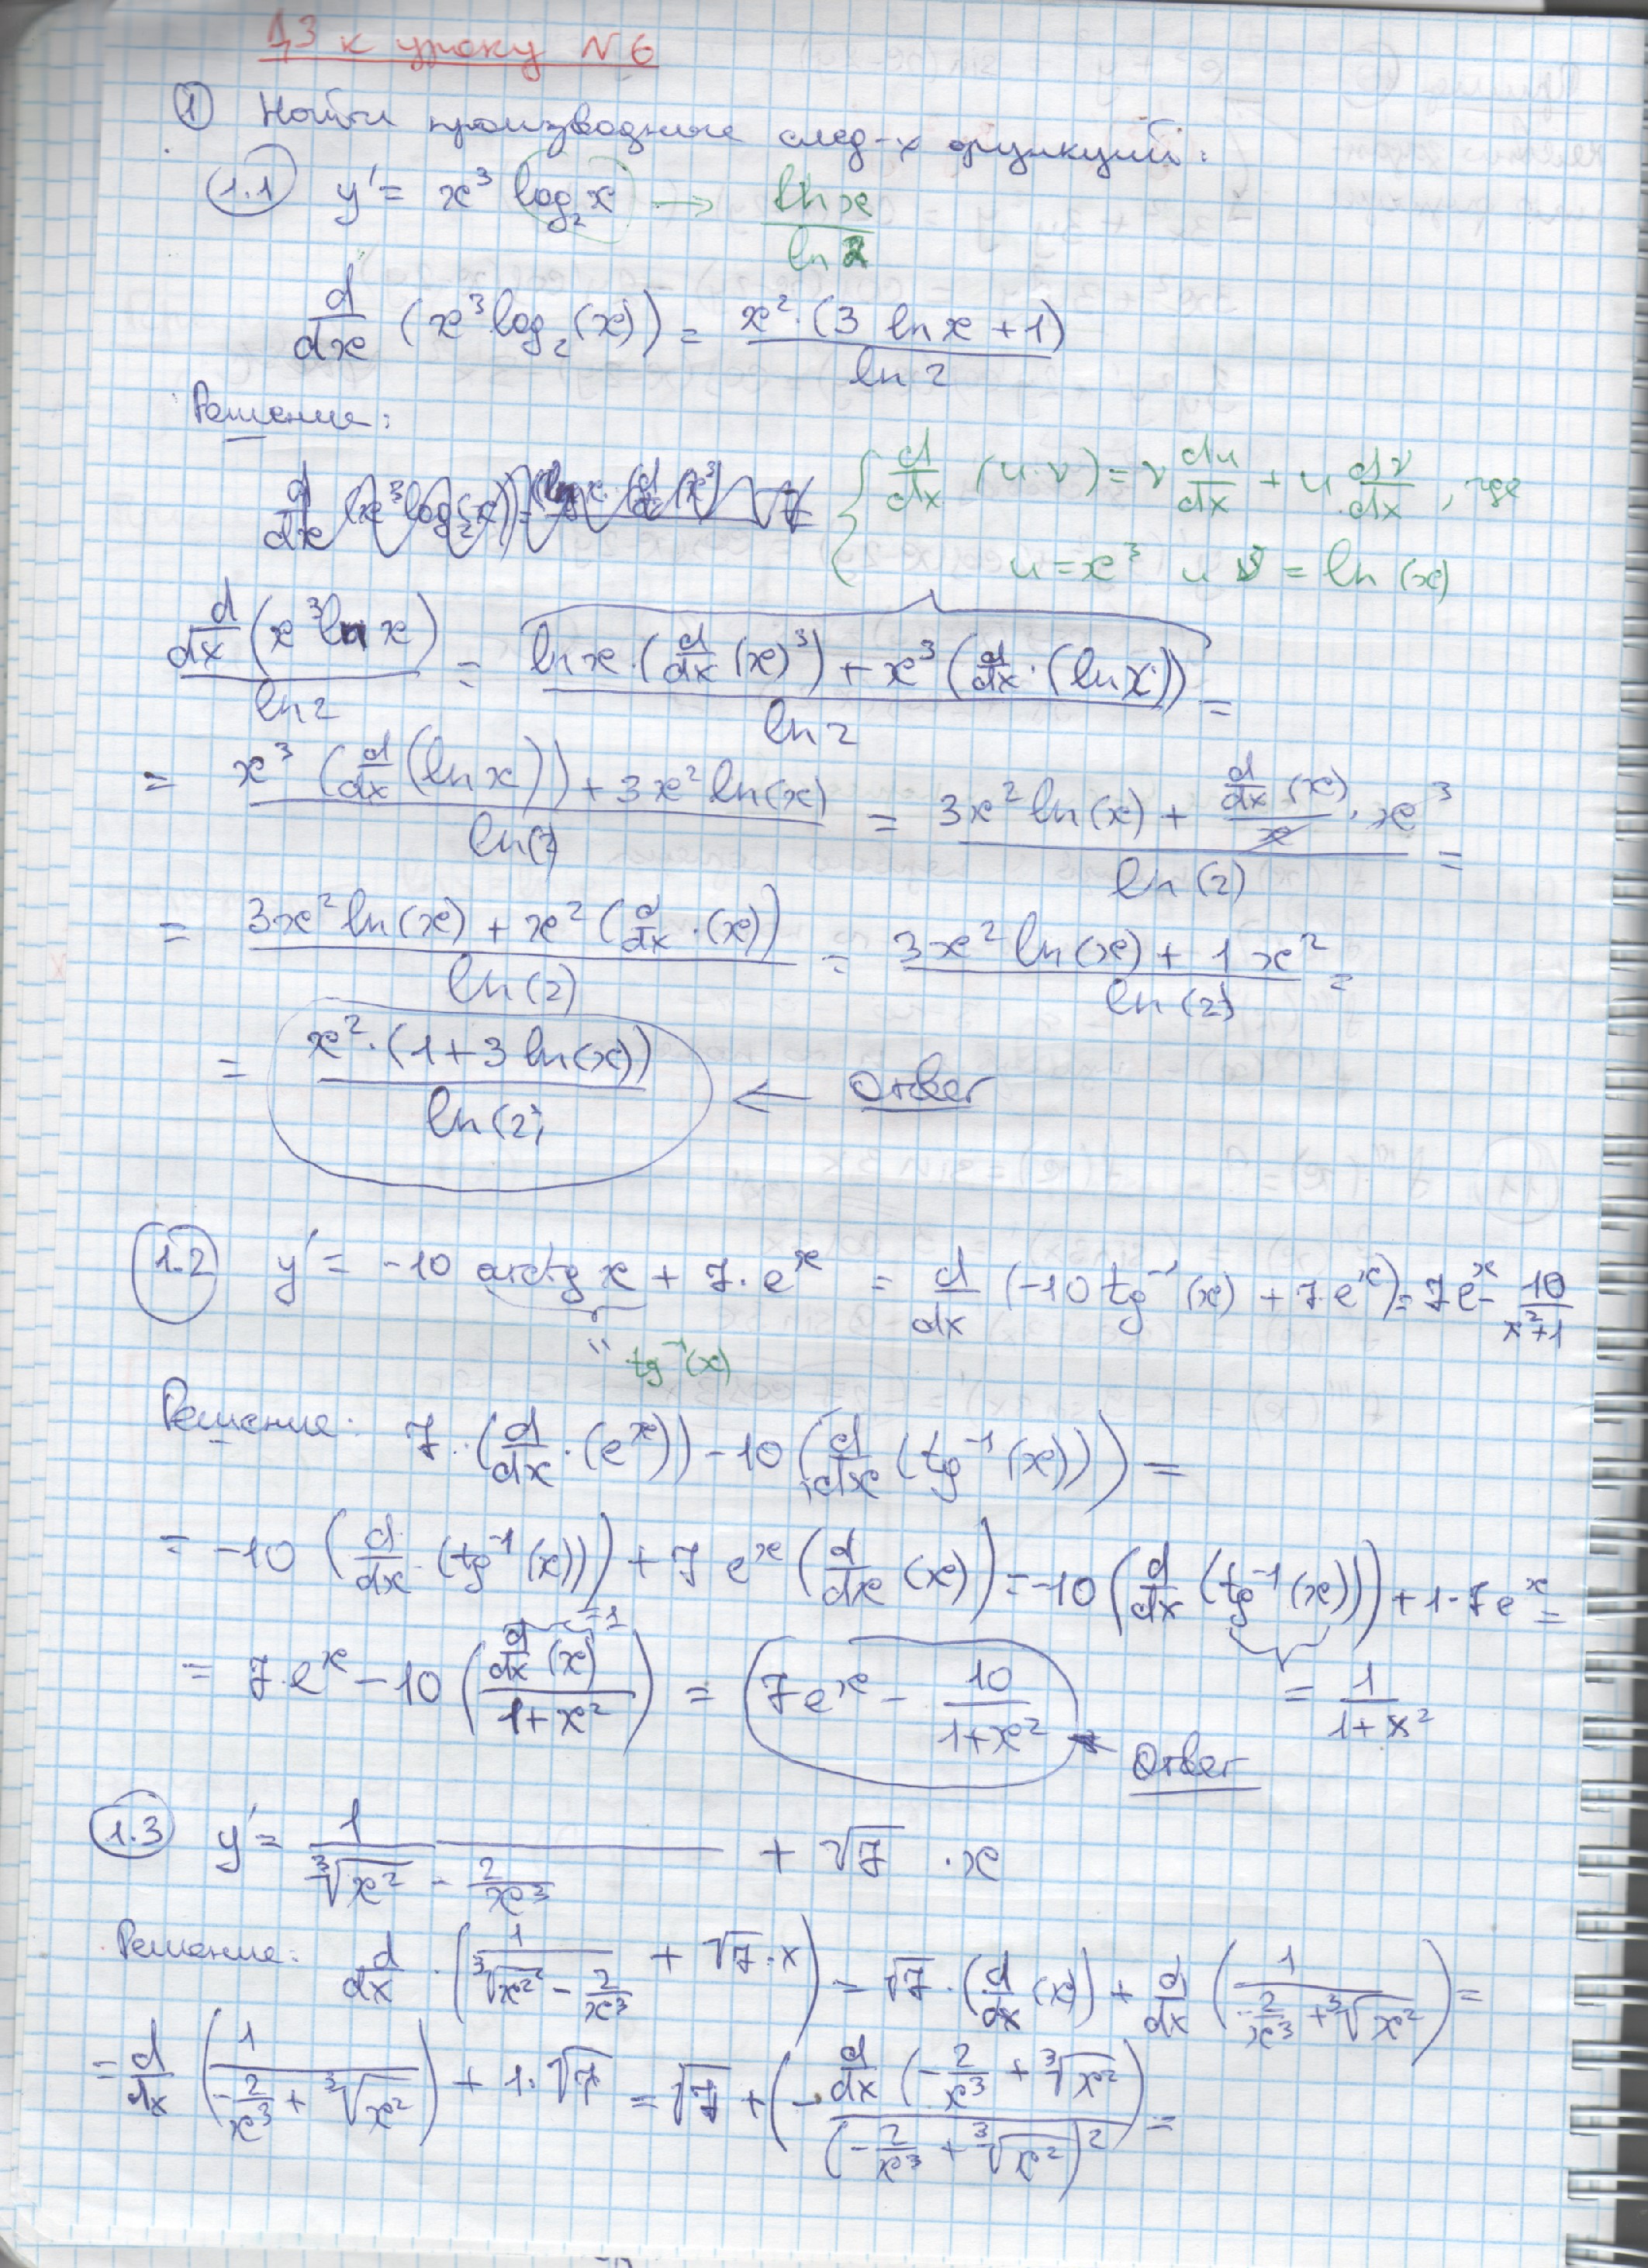 ДЗ к уроку N 6
① Найти производные след-х функций:
1.1 y' = x³ log₂x → ln x / ln 2
d/dx (x³ log₂(x)) = x²·(3 ln x + 1) / ln 2
Решение:
{ d/dx (u·v) = v du/dx + u dv/dx, где
u = x³ и v = ln(x)
d/dx (x³ ln x) / ln 2 = (ln x·(d/dx (x)³) + x³ (d/dx·(ln x))) / ln 2 =
= (x³ (d/dx (ln x)) + 3x² ln(x)) / ln(2) = (3x² ln(x) + (d/dx (x) / x)·x³) / ln(2) =
= (3x² ln(x) + x² (d/dx·(x))) / ln(2) = (3x² ln(x) + 1x²) / ln(2) =
= x²·(1 + 3 ln(x)) / ln(2) ← Ответ
1.2 y' = -10 arctg x + 7·eˣ = d/dx (-10 tg⁻¹(x) + 7·eˣ) = 7eˣ - 10/(x²+1)
'' tg⁻¹(x)
Решение: 7·(d/dx·(eˣ)) - 10 (d/dx (tg⁻¹(x))) =
= -10 (d/dx·(tg⁻¹(x))) + 7 eˣ (d/dx (x)) = -10 (d/dx (tg⁻¹(x))) + 1·7eˣ =
= 7·eˣ - 10 (d/dx (x) / (1+x²)) = 7eˣ - 10/(1+x²) ← Ответ
=1
= 1/(1+x²)
1.3 y' = 1 / (∛x² - 2/x³) + √7 ·x
Решение: d/dx·(1 / (∛x² - 2/x³) + √7·x) = √7·(d/dx (x)) + d/dx (1 / (-2/x³ + ∛x²)) =
= d/dx (1 / (-2/x³ + ∛x²)) + 1·√7 = √7 + (- d/dx (-2/x³ + ∛x²) / (-2/x³ + ∛x²)²) =